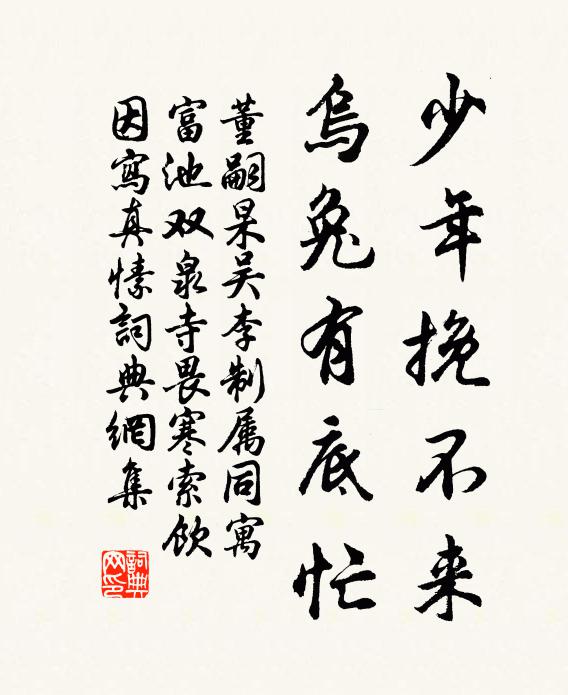 少年挽不来
乌兔有底忙
董嗣杲吴李制属同寓
富池双泉寺畏寒索饮
因寫真愫詞典網集
詞典
网印